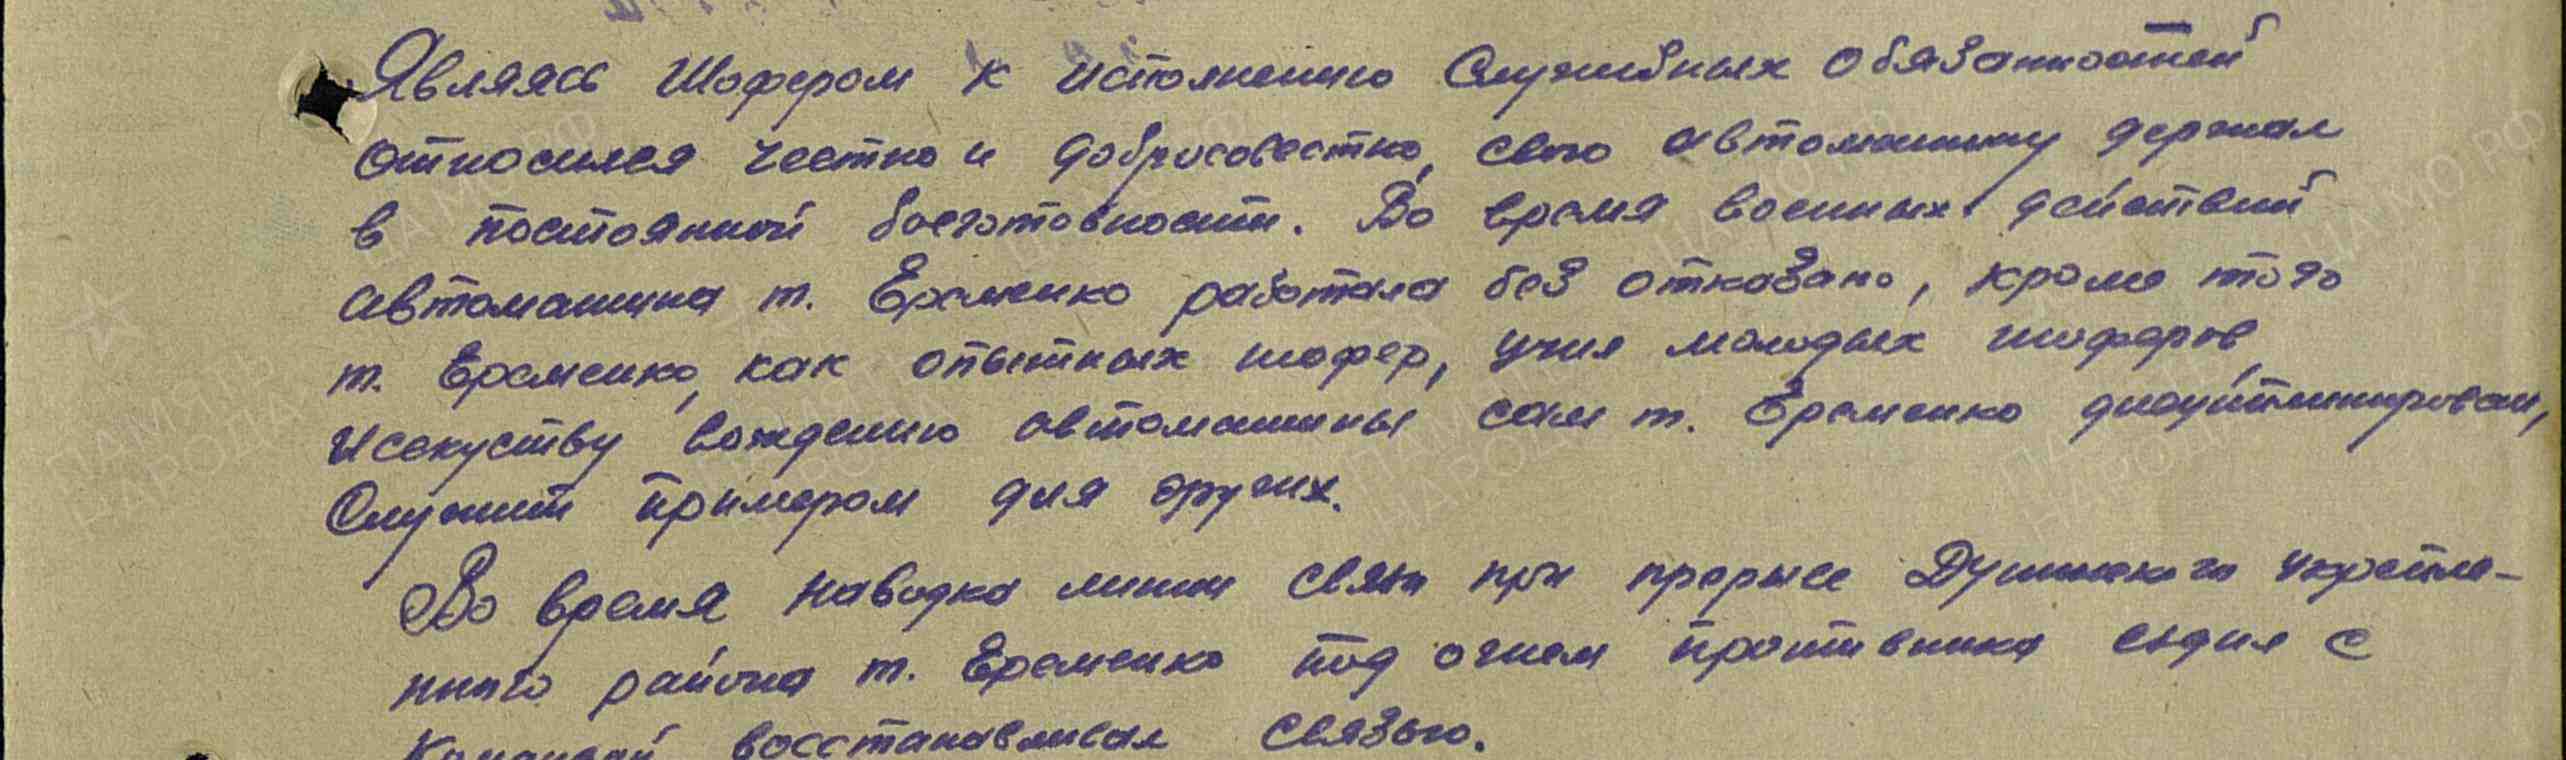 Являясь Шофером к исполнению Служебных обязанностей
относился честно и добросовестно, свою автомашину держал
в постоянной боеготовности. Во время военных действий
автомашина т. Еременко работала без отказано, кроме того
т. Еременко, как опытных шофер, учил молодых шоферов,
Исскуству вождению автомашины сам т. Еременко
Служит примером для других.
Во время наводка линии связи при прорыве укрепле-
нного района т. Еременко под огнем противника ездил с
восстанавливал Связью.